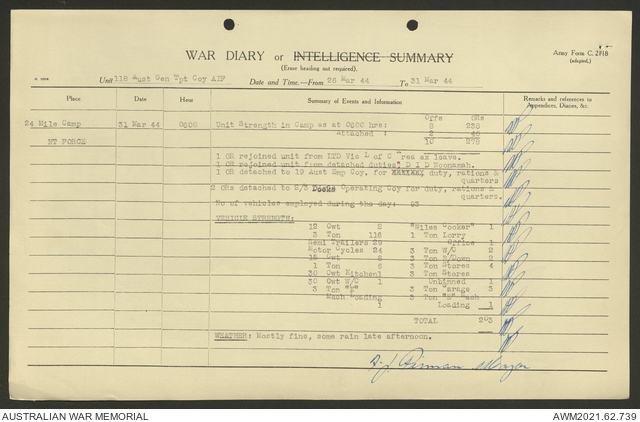 WAR DIARY or INTELLIGENCE SUMMARY
(Erase heading not required).
Army Form C. 2118
(adapted.)
Unit 118 Aust Gen Tpt Coy AIF
Date and Time.—From 26 Mar 44 To 31 Mar 44
Place Date Hour Summary of Events and Information Remarks and references to
Appendices, Diaries, &c.
Offs ORs
24 Mile Camp 31 Mar 44 0600 Unit Strength in Camp as at 0600 hrs: 8
attached : 2
NT FORCE 10 278
1 OR rejoined unit from LTD Vic L of C Area ex leave.
1 OR rejoined unit from detached duties, D I D Noonamah.
1 OR detached to 19 Aust Emp Coy. for duty, rations &
quarters
2 ORs detached to 2/3 Docks Operating Coy for duty, rations &
quarters.
No of vehicles employed during the day: 93
VEHICLE STRENGTH:
12 Cwt 2 "Wiles Cooker" 1
3 Ton 116 1 Ton Lorry
Semi Trailers 29 Office 1
Motor Cycles 24 3 Ton W/C 2
15 Cwt 8 3 Ton B/Down 2
1 Ton 6 3 Ton Stores 4
30 Cwt Kitchen 1 3 Ton Stores
30 Cwt W/C 1 Unbinned 1
3 Ton "F" 3 Ton Garage 3
Mach Loading 1 3 Ton Mach
Loading 1
TOTAL 203
WEATHER: Mostly fine, some rain late afternoon.
Major
AUSTRALIAN WAR MEMORIAL
AWM2021.62.739